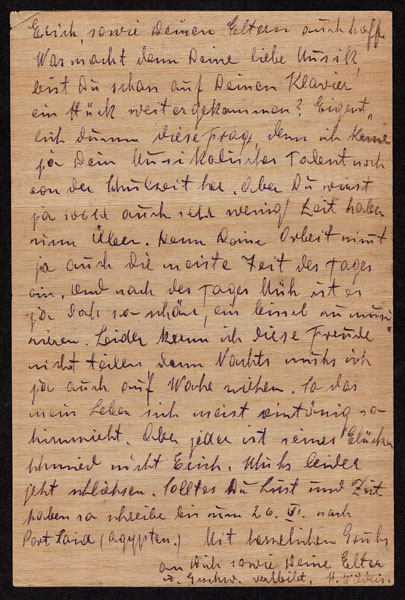 Erich, sowie Deinen Eltern auch hoffe
Was macht denn Deine liebe Mussik
bist Du schon auf Deinen Klavier
ein Stück weitergekommen? Eigent„
lich dumm diese Frag, denn ich kenne
ja Dein Musikalisches Talent noch
von der Schulzeit her. Aber Du wirst
ja wohl auch sehr wenig Zeit haben
zum Üben. Denn Deine Arbeit nimt
ja auch die meiste Zeit des Tages
ein. Und nach des Tages Müh ist es
ja doch so schön, ein bissel zu musi„
zieren. Leider kann ich diese Freude
nicht teilen denn Nachts muhs ich
ja auch auf Wache ziehen. So das
mein Leben sich meist eintönig so
hinzieht. Aber jeder ist seines Glückes
Schmied nicht Erich. Muhs leider
jetzt schliehsen. Solltes Du Lust und Zeit
haben so schreibe bis zum 26. VI. nach
Port Said (Ägypten.) Mit herzlichen Gruhs
an Dich sowie Deine Elter
u. Geschw. verbleibt,